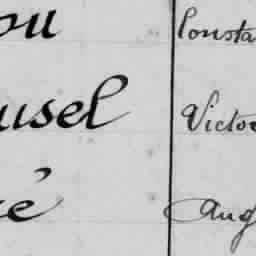 ou Consta
usel Victo
cé Aug